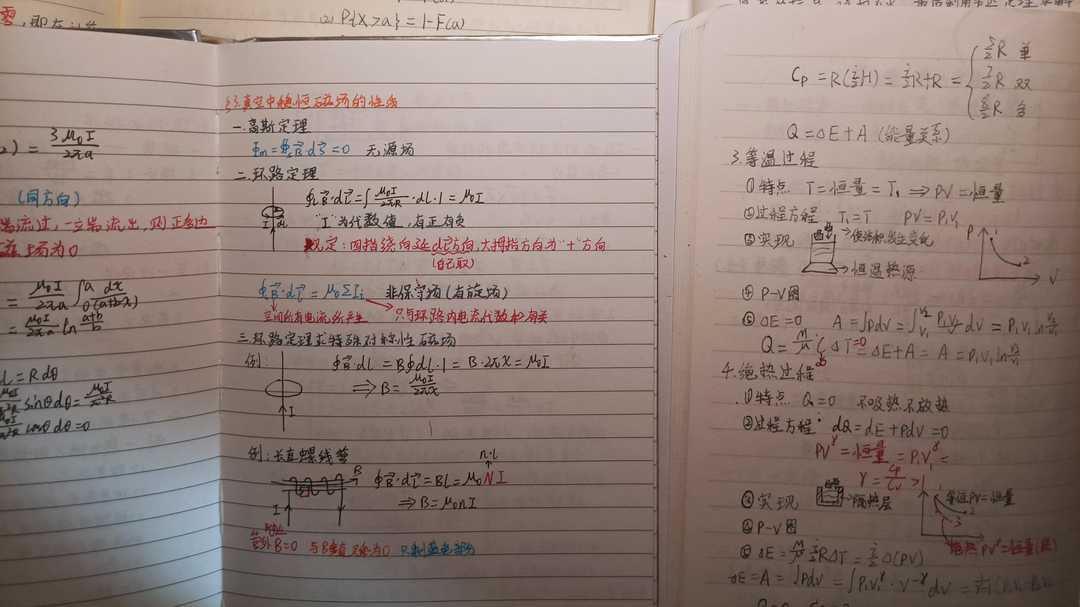 (2) P{X>a}=1-F(a)
2) = 3μ₀I/2πa
(同方向)
磁场为0
= μ₀I/2πa ∫₀ᵃ dx/(a+b-x)
= μ₀I/2πa ln (a+b)/b
dl = Rdθ
sinθdθ = μ₀I/π²R
cosθdθ = 0
§3.真空中稳恒磁场的性质
一.高斯定理
Φm = ∯s B⃗·dS⃗ = 0 无源场
二.环路定理
∮L B⃗·dl⃗ = ∫ μ₀I/2πR ·dl·1 = μ₀I
I dl
"I"为代数值,有正有负
规定:四指绕向延dl⃗方向,大拇指方向为"+"方向
(自己取)
∮L B⃗·dl⃗ = μ₀ΣIᵢ 非保守场(有旋场)
空间所有电流所产生 只与环路内电流代数和有关
三.环路定理求特殊对称性磁场
例:
∮B⃗·dl = B∮dl·1 = B·2πx = μ₀I
⇒ B = μ₀I/2πx
I
例:长直螺线管
n·l
B ∮B⃗·dl⃗ = BL = μ₀NI
I ⇒ B = μ₀nI
管外B=0
Cp = R(i/2+1) = i/2R+R = { 5/2R 单
7/2R 双
8/2R 多
Q = ΔE+A (能量关系)
3.等温过程
①特点 T=恒量=T₁ ⇒ PV=恒量
②过程方程 T₁=T PV=P₁V₁
③实现 →使体积发生变化
→恒温热源
P 1 2 V
④P-V图
⑤ΔE=0 A=∫Pdv=∫ᵥ₁ⱽ² P₁V₁/V dv = P₁V₁ln V₂/V₁
Q = M/μ C ΔT = ΔE+A = A = P₁V₁ln V₂/V₁
=0
∞
4.绝热过程
①特点 Q=0 不吸热不放热
②过程方程 dQ=dE+Pdv=0
PVᵞ=恒量=P₁V₁ᵞ=…
γ = Cp/Cv >1
③实现 →隔热层
1 等温PV=恒量
2
3
④P-V图
绝热PVᵞ=恒量
⑤ΔE = M/μ i/2RΔT = i/2Δ(PV)
ΔE=A=∫Pdv=∫P₁V₁ᵞ·V⁻ᵞdv